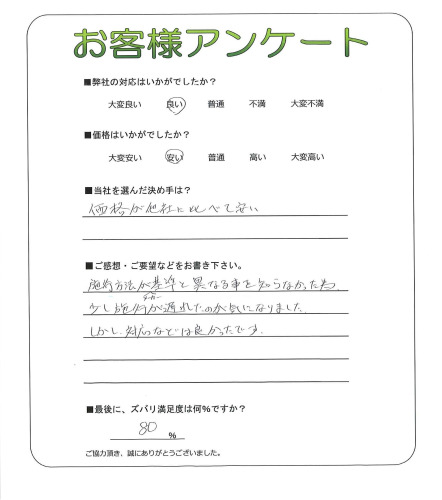 お客様アンケート
■弊社の対応はいかがでしたか？
大変良い 良い 普通 不満 大変不満
■価格はいかがでしたか？
大変安い 安い 普通 高い 大変高い
■当社を選んだ決め手は？
価格が他社に比べて安い
■ご感想・ご要望などをお書き下さい。
施術方法が基準と異なる事を知らなかった為、
少し施術が遅れたのが気になりました。
しかし、対応などは良かったです。
■最後に、ズバリ満足度は何％ですか？
80 ％
ご協力頂き、誠にありがとうございました。